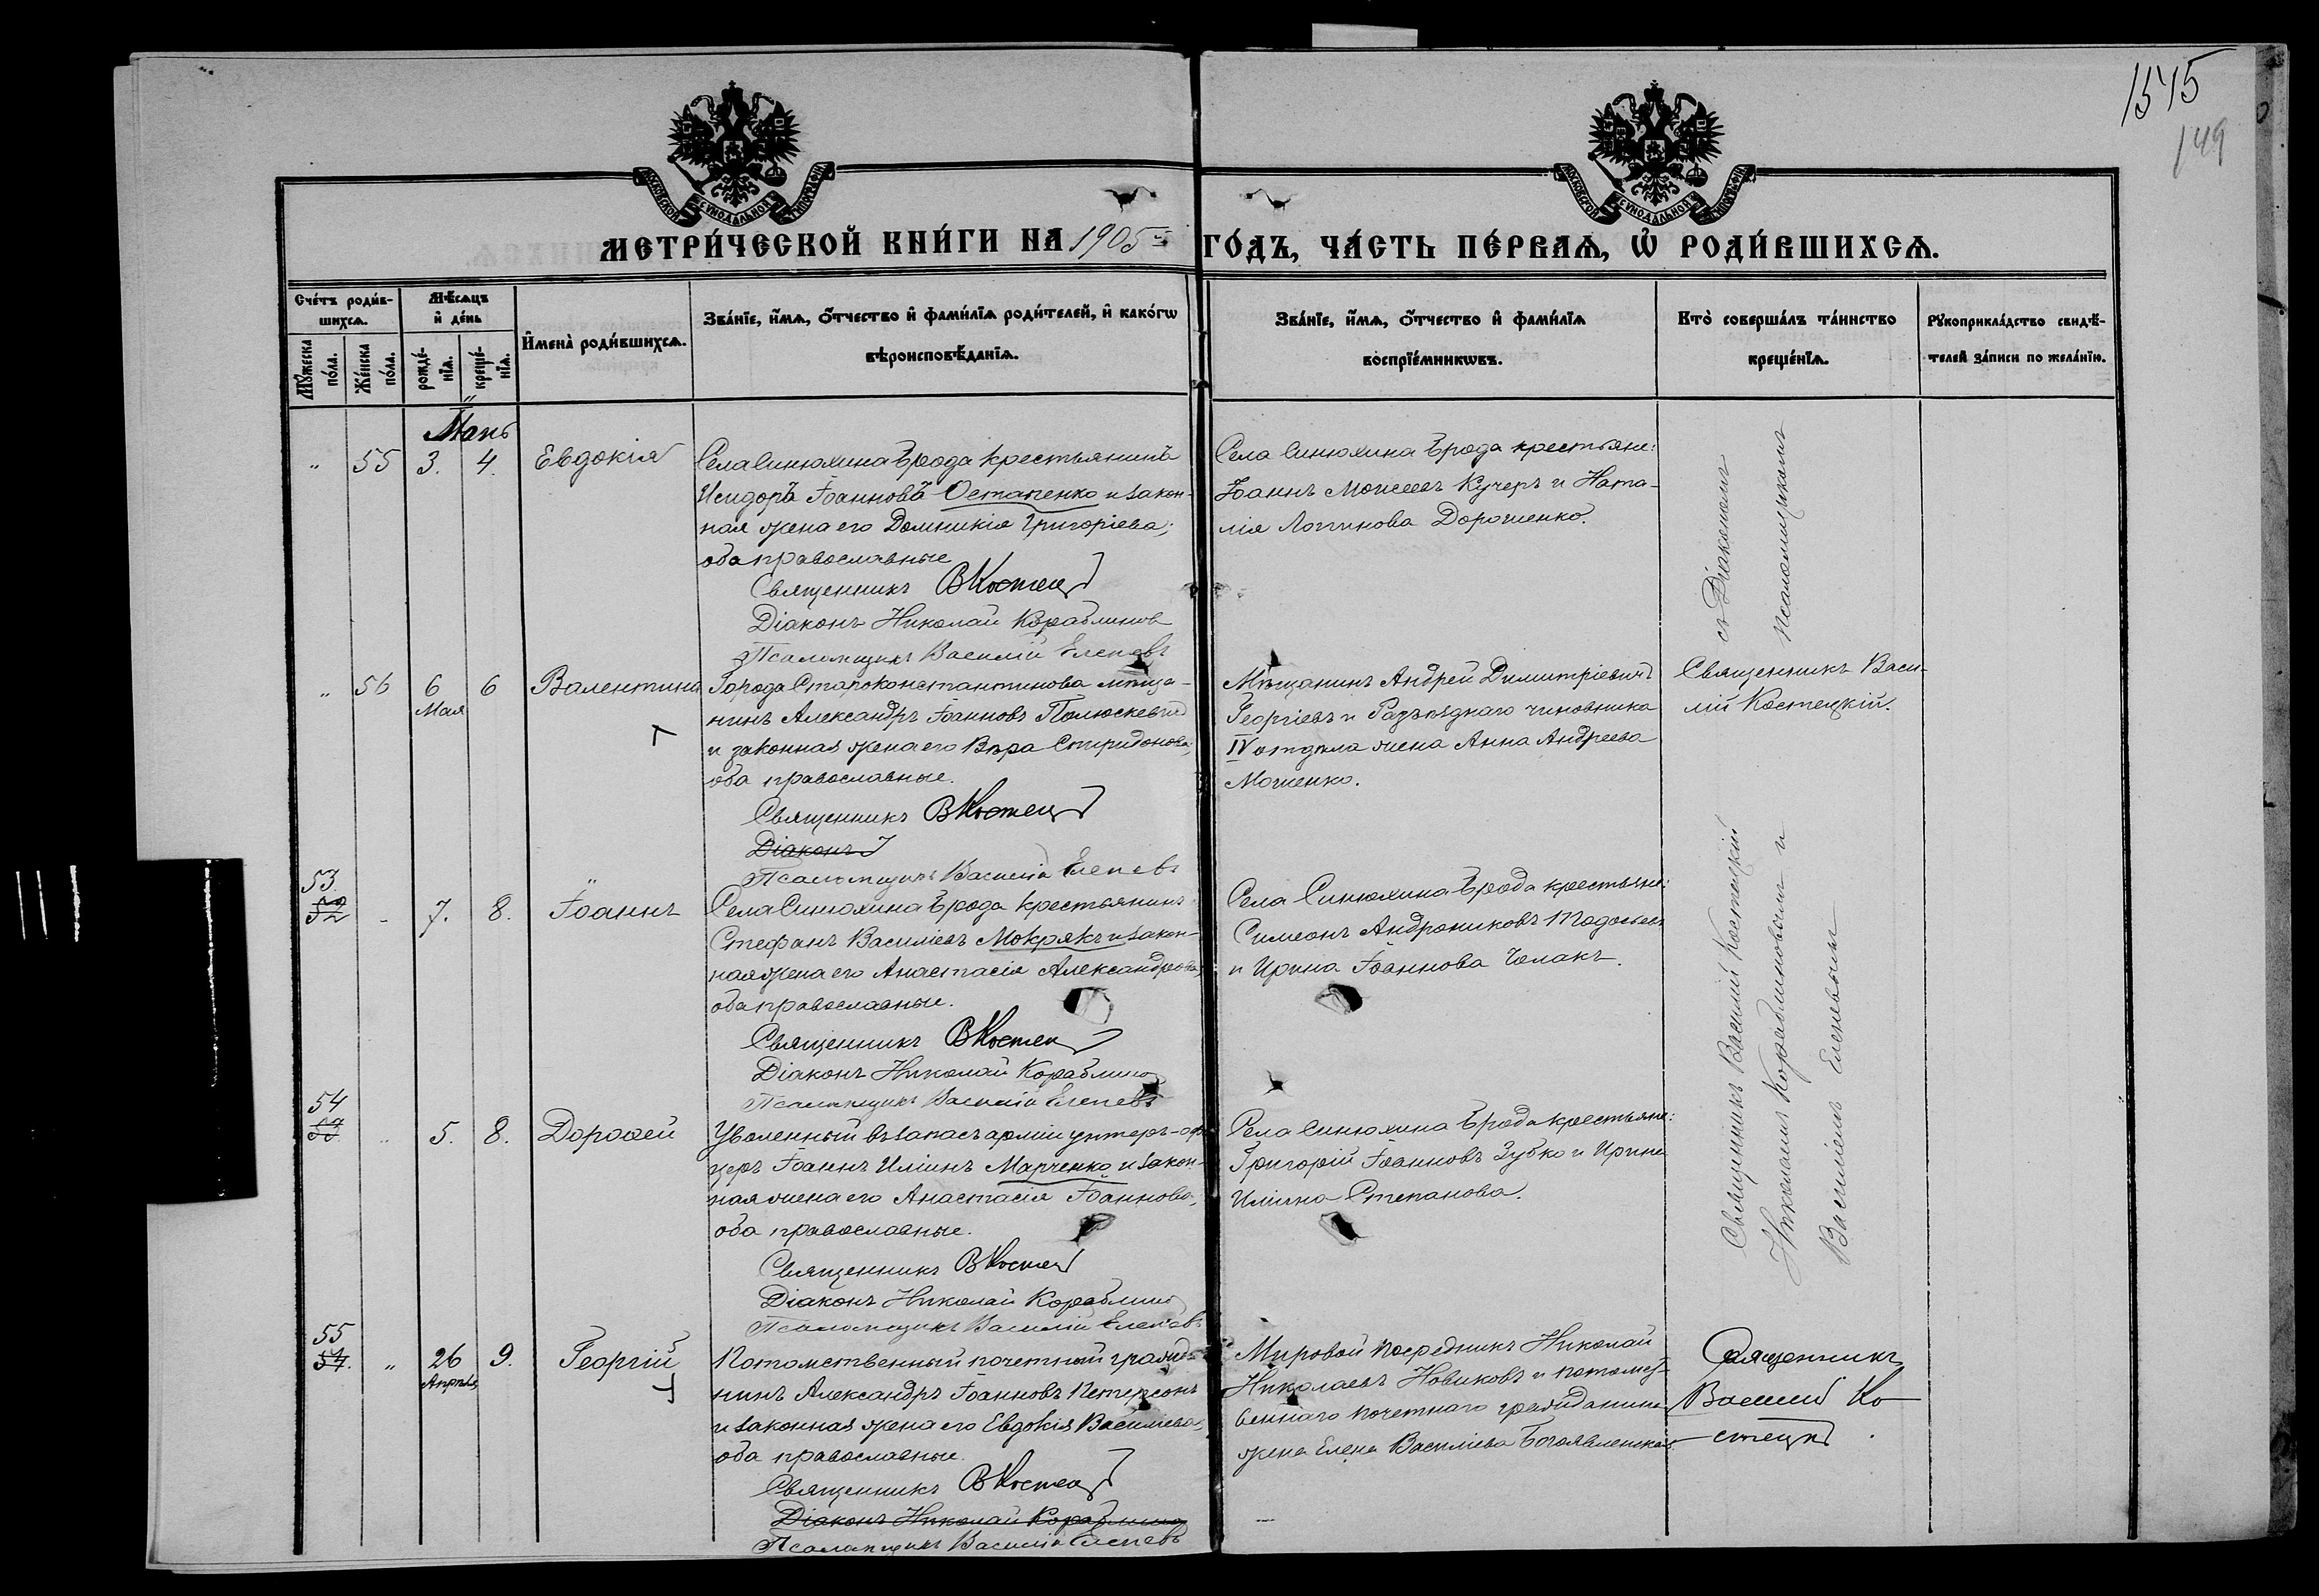 1545
149
МОСКОВСКОЙ СѴНОДАЛЬНОЙ ТИПОГРАФІИ
МОСКОВСКОЙ СѴНОДАЛЬНОЙ ТИПОГРАФІИ
МЕТРИ́ЧЕСКОЙ КНИ́ГИ НА 1905й ГО́ДЪ, ЧА́СТЬ ПЕ́РВАѦ, Ѡ҆ РОДИ́ВШИХСѦ.
Сче́тъ роди́в-
шихсѧ.
Мꙋ́жеска по́ла.
Же́нска по́ла.
Мѣ́сѧцъ
и҆ де́нь
рожде́-
нїѧ.
креще́-
нїѧ.
И҆мена̀ роди́вшихсѧ.
Зва́нїе, и҆́мѧ, ѻ҆́тчество и҆ фами́лїѧ роди́телей, и҆ како́гѡ
вѣроисповѣ́данїѧ.
Зва́нїе, и҆́мѧ, ѻ҆́тчество и҆ фами́лїѧ
воспрїе́мникѡвъ.
Кто̀ соверша́лъ та́инство
креще́нїѧ.
Рꙋкоприкла́дство свидѣ́-
телей за́писи по жела́нїю.
Маий
" 55 3. 4. Евдокія
Села Синюхина Брода крестьянинъ
Исидоръ Іоанновъ Остапенко и закон-
ная жена его Домникія Григоріева;
оба православные
Священникъ ВКостец
Діаконъ Николай Кораблинов
Псаломщикъ Василій Елепевъ
Села Синюхина Брода крестьяне:
Іоаннъ Моисеевъ Кучеръ и Ната-
лія Логгинова Дорошенко.
" 56 6 Мая 6 Валентина
Города Староконстантинова мѣща-
нинъ Александръ Іоанновъ
и законная жена его Вѣра Спиридонова;
оба православные.
Священникъ ВКостец
Діаконъ
Псаломщикъ Василій Елепевъ
Мѣщанинъ Андрей Димитріевичъ
Георгіевъ и Разъѣзднаго чиновника
IV отдѣла жена Анна Андреева
Мошенко.
Священникъ Васи-
лій Костецкій.
53.
52 - 7. 8. Іоаннъ
Села Синюхина Брода крестьянинъ
Стефанъ Василіевъ Мокрякъ и закон-
ная жена его Анастасія Александрова,
оба православные.
Священникъ ВКостец
Діаконъ Николай Кораблино
Псаломщикъ Василій Елепевъ
Села Синюхина Брода крестьяне:
Симеонъ Андрониковъ
и Ирина Іоаннова Чолакъ.
54
53 " 5. 8. Дороѳей
Уволенный въ запасъ арміи унтеръ-офи
церъ Іоаннъ Иліинъ Марченко и закон-
ная жена его Анастасія Іоаннова,
оба православные.
Священникъ ВКостец
Діаконъ Николай Кораблино
Псаломщикъ Василій Елепевъ
Села Синюхина Брода крестьяне:
Григорій Іоанновъ Зубко и Ирина
Иліина Степанова.
Священникъ Василій Костецкій съ Діакономъ
Николаемъ Кораблиновымъ и псаломщикомъ
Василіемъ Елепевымъ
55
54. " 26 Апрѣля 9. Георгій
Потомственный почетный гражда-
нинъ Александръ Іоанновъ Петерсонъ
и законная жена его Евдокія Василіева,
оба православные.
Священникъ ВКостец
Діаконъ Николай Кораблино
Псаломщикъ Василій Елепевъ
Мировой Посредникъ Николай
Николаевъ Новиковъ и потомст-
веннаго почетнаго гражданина
жена Елена Василіева Богоявленская
Священникъ
Василій Ко
стецкі